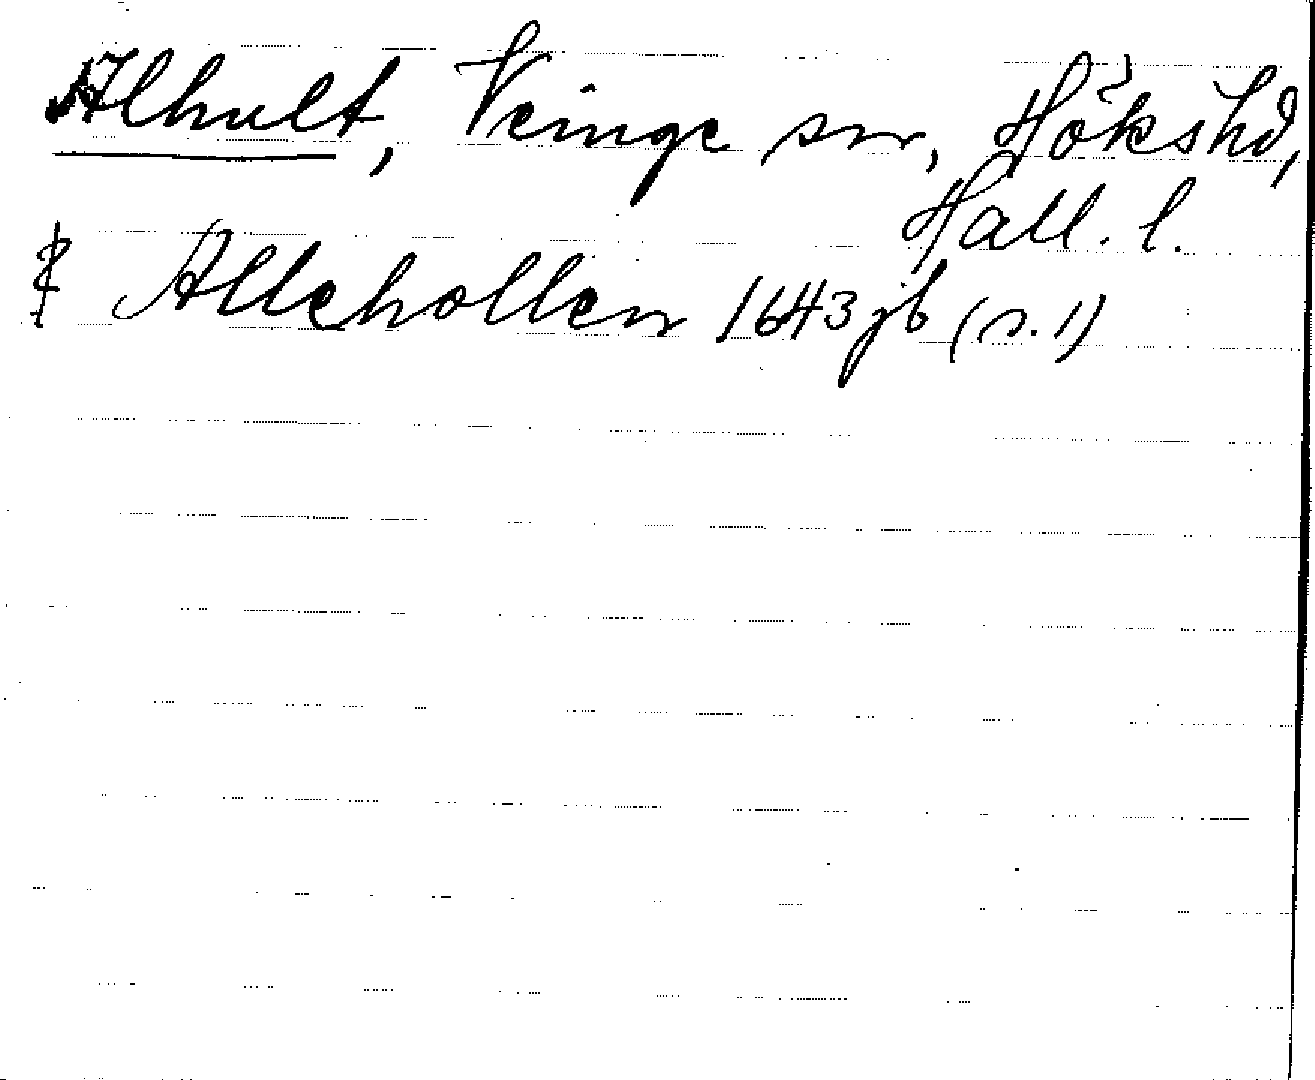 Alhult, Veinge sn, Höks hd,
Hall. l.
Allehollen 1643 jb (s. 1)